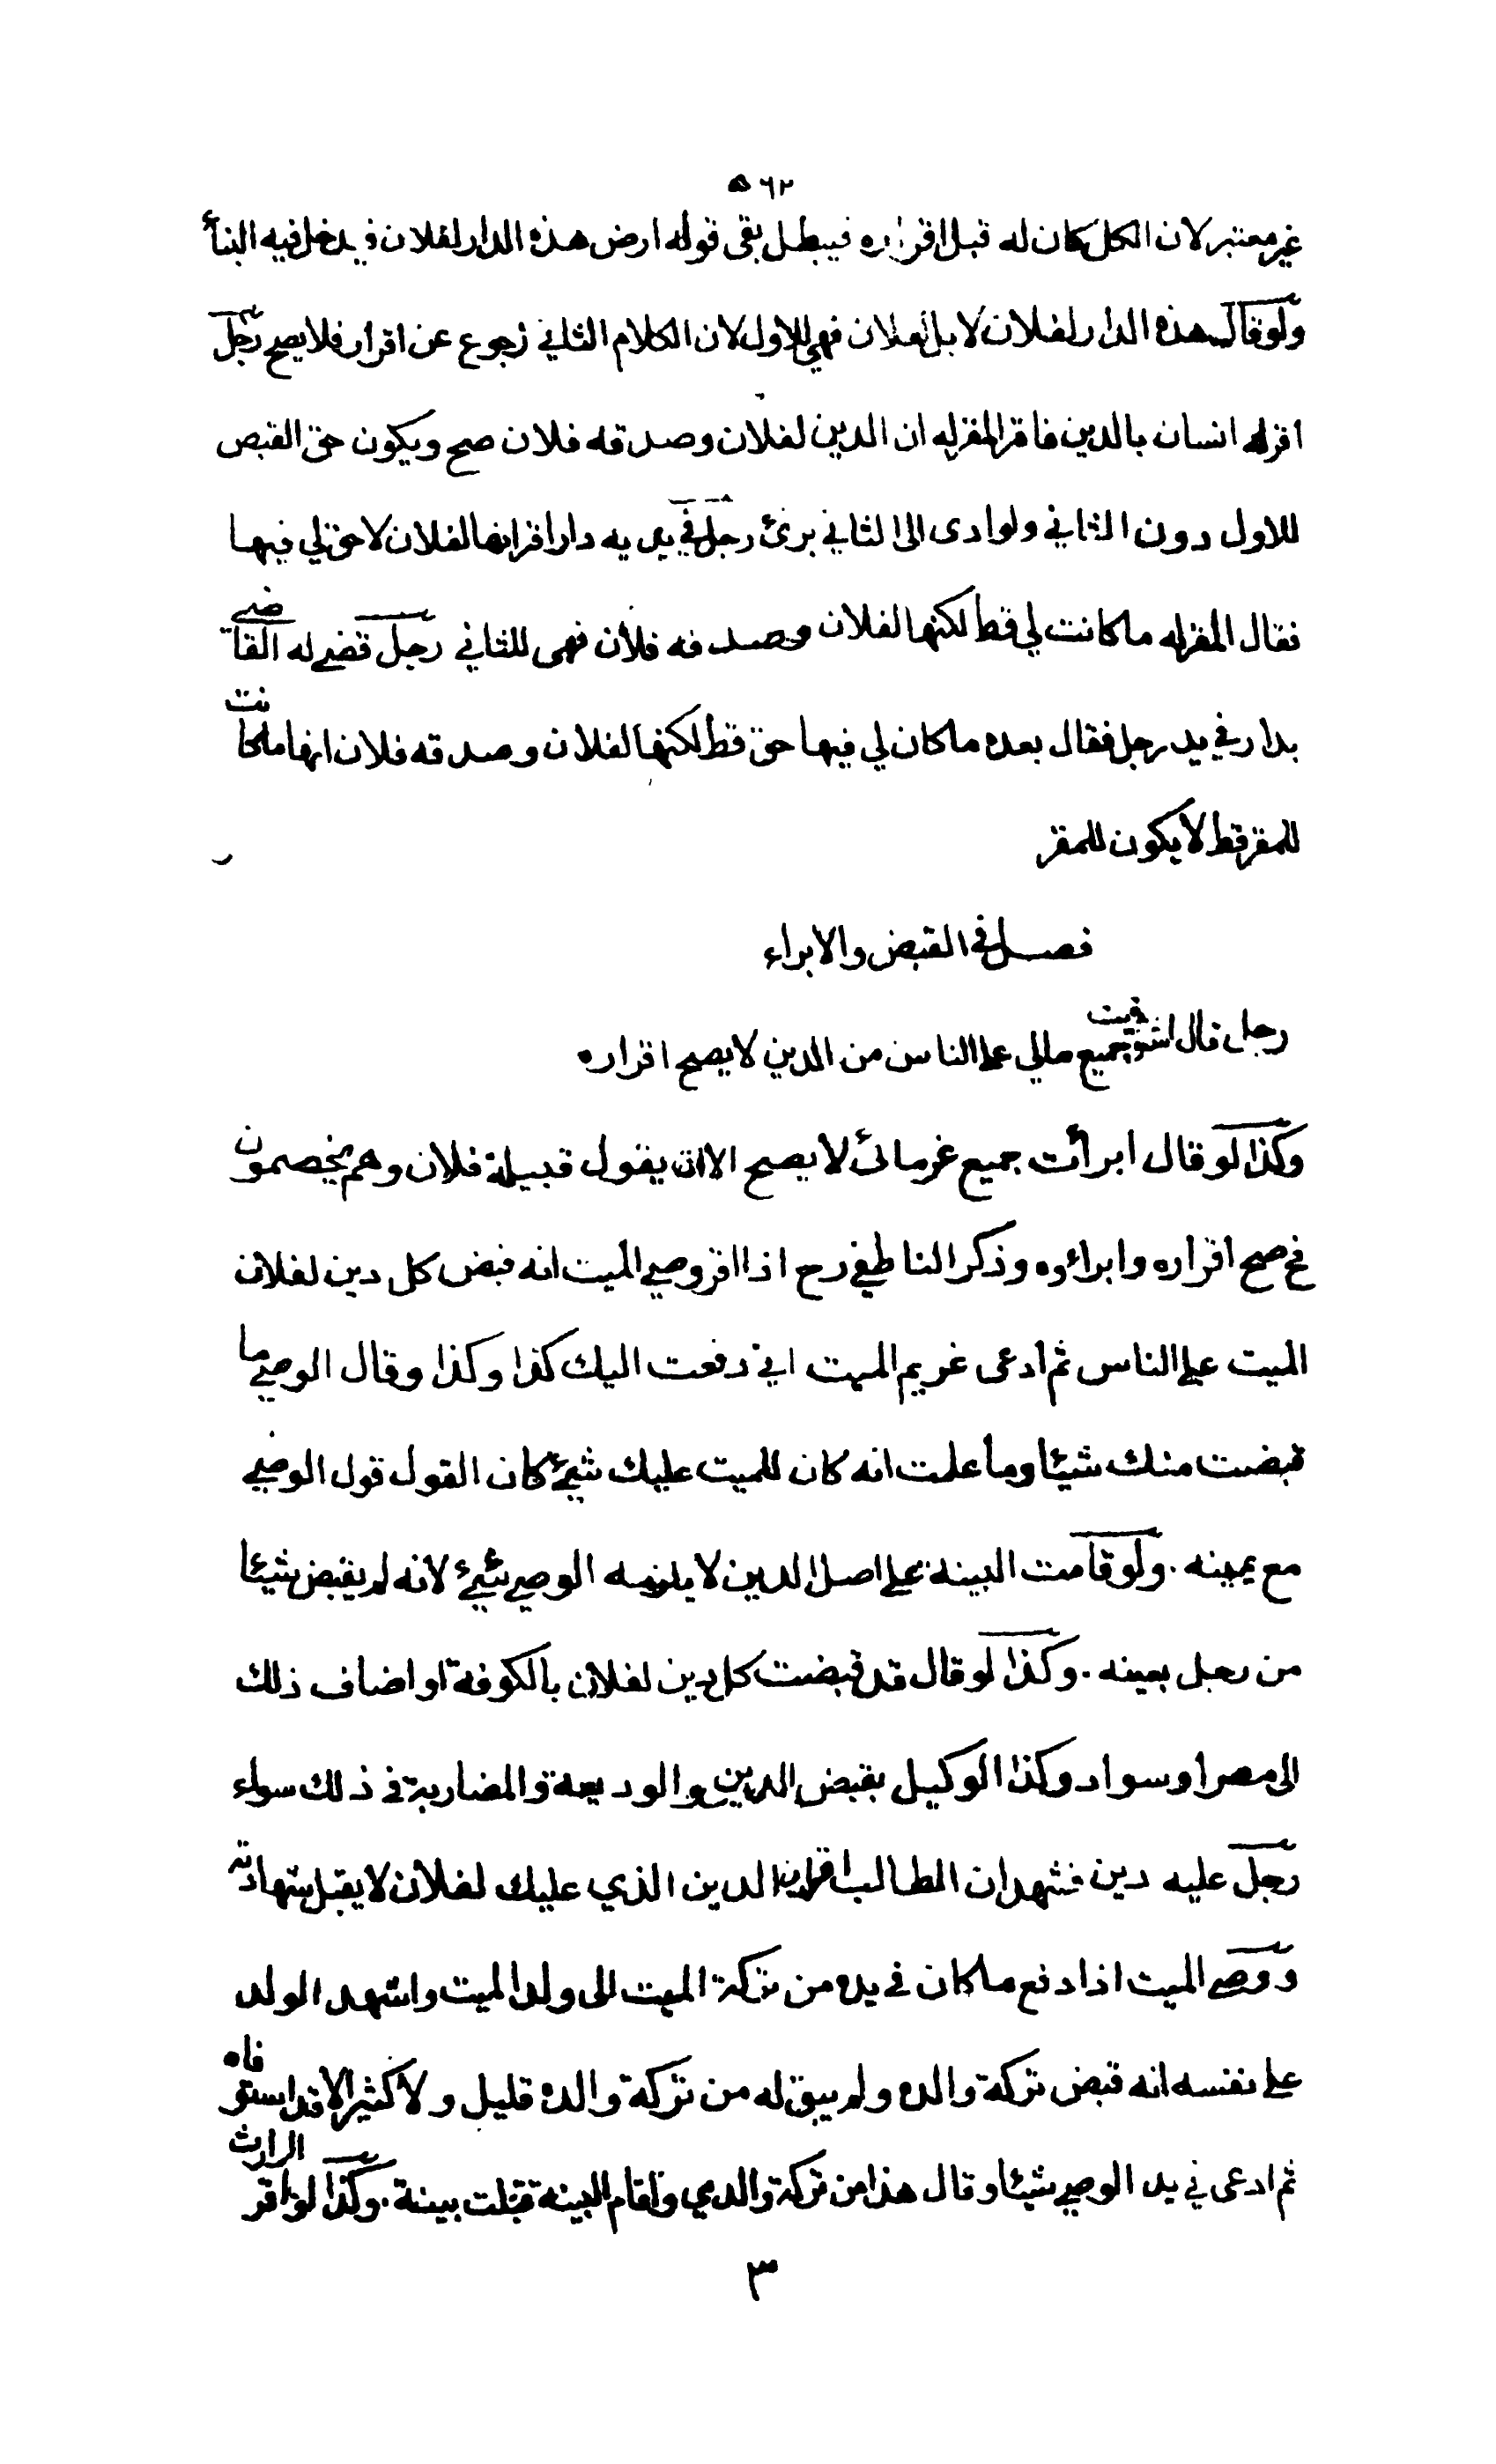 ٥٦٢
غير معتبر لان الكل كان له قبل اقراره فيبطل بقى قوله ارض هذه الدار لفلان فيدخل فيه البنأ
ولو قال هذه الدار لفلان لا بل لفلان فهي للاول لان الكلام الثاني رجوع عن اقرار فلا يصح رجل
اقر له انسان بالدين فاقر المقر له ان الدين لفلان وصدقه فلان صح ويكون حق القبض
للاول دون الثاني ولو ادى الى الثاني برئ رجل في يديه دار اقر انها لفلان لا حق لي فيها
فقال المقر له ما كانت لي قط لكنها لفلان وصدقه فلان فهى للثاني رجل قضى له القاضى
بدار في يد رجل فقال بعده ما كان لي فيها حق قط لكنها لفلان وصدقه فلان انها ما كانت
للمقر قط لا يكون للمقر
فصل في القبض والابراء
رجل قال استوفيت جميع مالي على الناس من الدين لا يصح اقراره
وكذا لو قال ابرأت جميع غرمائ لا يصح الا ان يقول قبيلة فلان وهم يخصمون
فح صح اقراره وابراءوه وذكر الناطفي رح اذا اقر وصي الميت انه قبض كل دين لفلان
الميت على الناس ثم ادعى غريم الميت اني دفعت اليك كذا وكذا وقال الوصي ما
قبضت منك شيئا وما علمت انه كان للميت عليك شئ كان القول قول الوصي
مع يمينه . ولو قامت البينة على اصل الدين لا يلزمه الوصي شئ لانه لم يقبض شيئا
من رجل بعينه . وكذا لو قال قد قبضت كل دين لفلان بالكوفة او اضاف ذلك
الى مصر او سواد وكذا الوكيل بقبض الدين والوديعة والمضاربة في ذلك سواء
رجل عليه دين فشهد ان الطالب اقر ان الدين الذي عليك لفلان لا يقبل شهادته
ووصي الميت اذا دفع ما كان في يده من تركة الميت الى ولد الميت واشهد الولد
على نفسه انه قبض تركة والده ولم يبق له من تركة والده قليل ولا كثير الا قد استوفاه
ثم ادعى في يد الوصي شيئا وقال هذا من تركة والدي واقام البينة قبلت بينة . وكذا لو اقر الوارث
٣